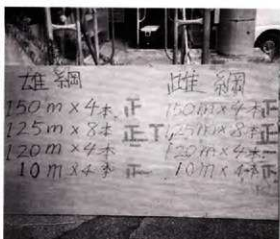 雄綱 雌綱
150m×4本 正 150m×4本 正
125m×8本 正下 125m×8本 正
120m×4本 120m×4本
10m×4本 正 10m×4本 正